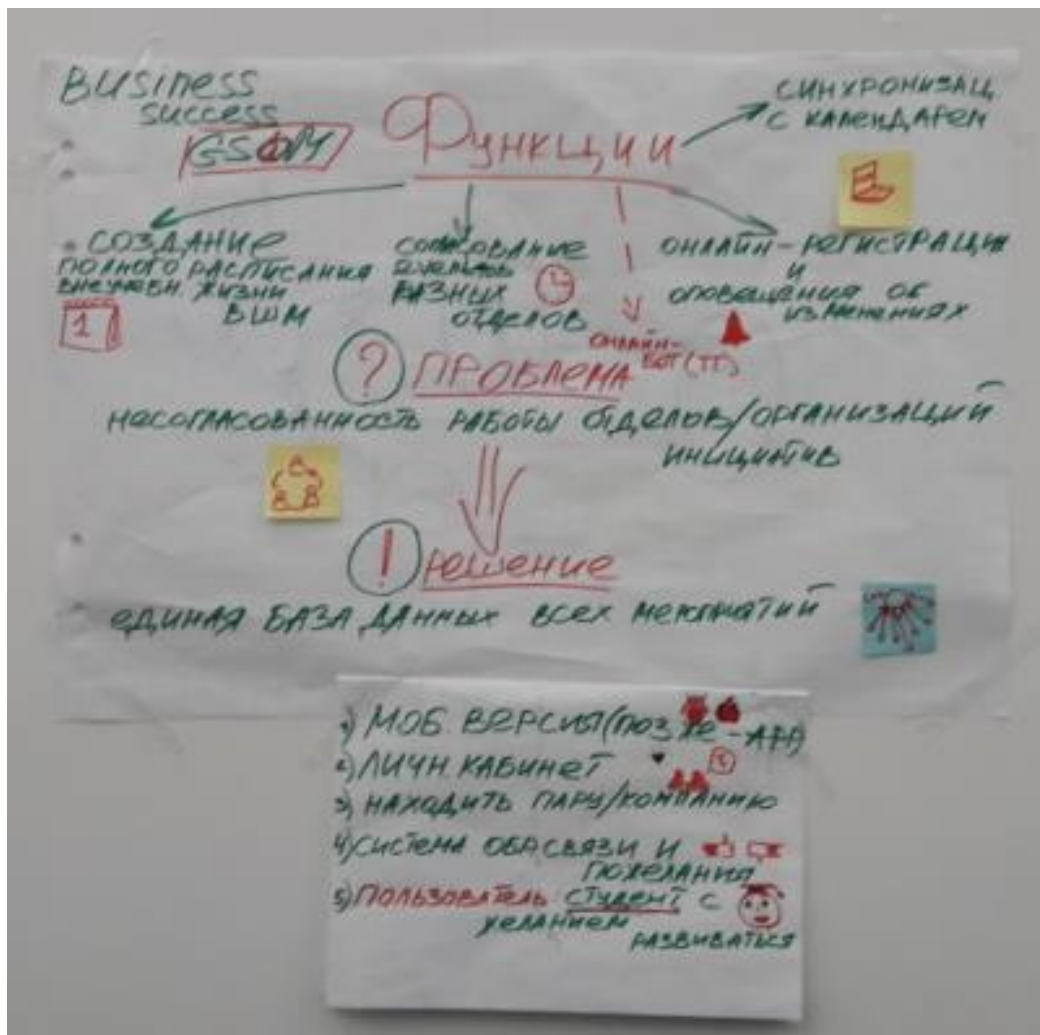 Business
success
GSOM
Функции
СИНХРОНИЗАЦ
С КАЛЕНДАРЕМ
СОЗДАНИЕ
ПОЛНОГО РАСПИСАНИЯ
ВНЕУЧЕБН. ЖИЗНИ
ВШМ
1
РАЗНЫХ
ОТДЕЛОВ
ОНЛАЙН-РЕГИСТРАЦИЯ
И
ОПОВЕЩЕНИЯ ОБ
ИЗМЕНЕНИЯХ
ОНЛАЙН-
БОТ (ТГ)
? ПРОБЛЕМА
НЕСОГЛАСОВАННОСТЬ РАБОТЫ ОТДЕЛОВ/ОРГАНИЗАЦИЙ
ИНИЦИАТИВ
! Решение
ЕДИНАЯ БАЗА ДАННЫХ ВСЕХ МЕРОПРИЯТИЙ
1) МОБ. ВЕРСИЯ (ПОЗЖЕ - APP)
2) ЛИЧН. КАБИНЕТ
3) НАХОДИТЬ ПАРУ/КОМПАНИЮ
4) СИСТЕМА ОБР. СВЯЗИ И
ПОЖЕЛАНИЯ
5) ПОЛЬЗОВАТЕЛЬ СТУДЕНТ С
ЖЕЛАНИЕМ
РАЗВИВАТЬСЯ